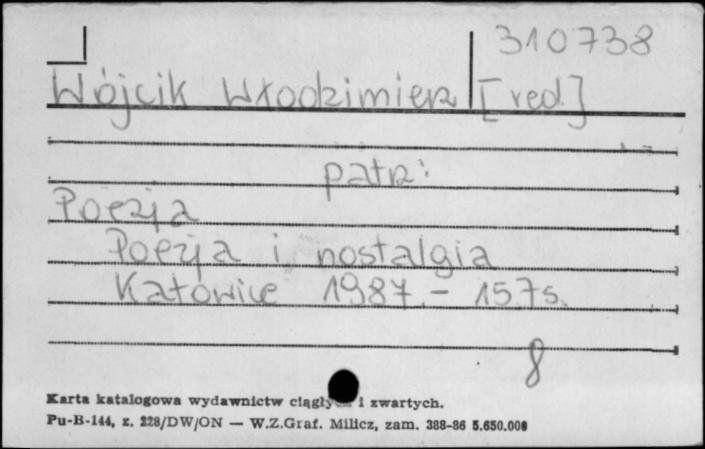 310738
Wójcik Włodzimierz [red.]
patrz:
Poezja
Poezja i nostalgia
Katowice 1987. - 157s.
8
Karta katalogowa wydawnictw i zwartych.
Pu-B-144, z. 228/DW/ON — W.Z.Graf. Milicz, zam. 388-86 5.650.000